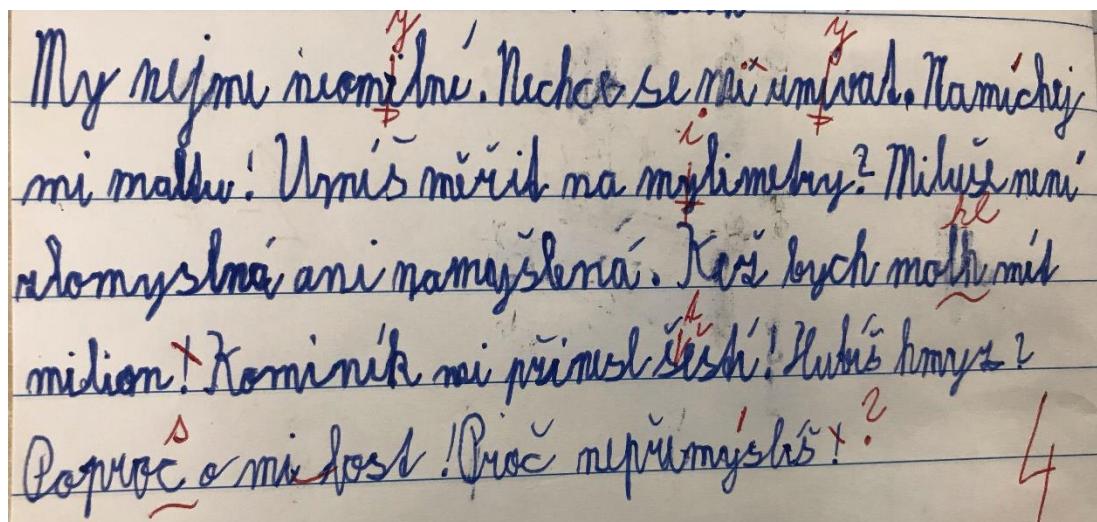 My nejme neomilné. Nechce se mi umívat. Namíchej
mi maltu! Umíš měřit na mylimetry? Miluše není
zlomyslná ani namyšlená. Kež bych molh mít
milion! Kominík mi přinesl šěstí! Hubíš hmyz?
Poproč o mi lost! Proč nepřimýslíš!?
4